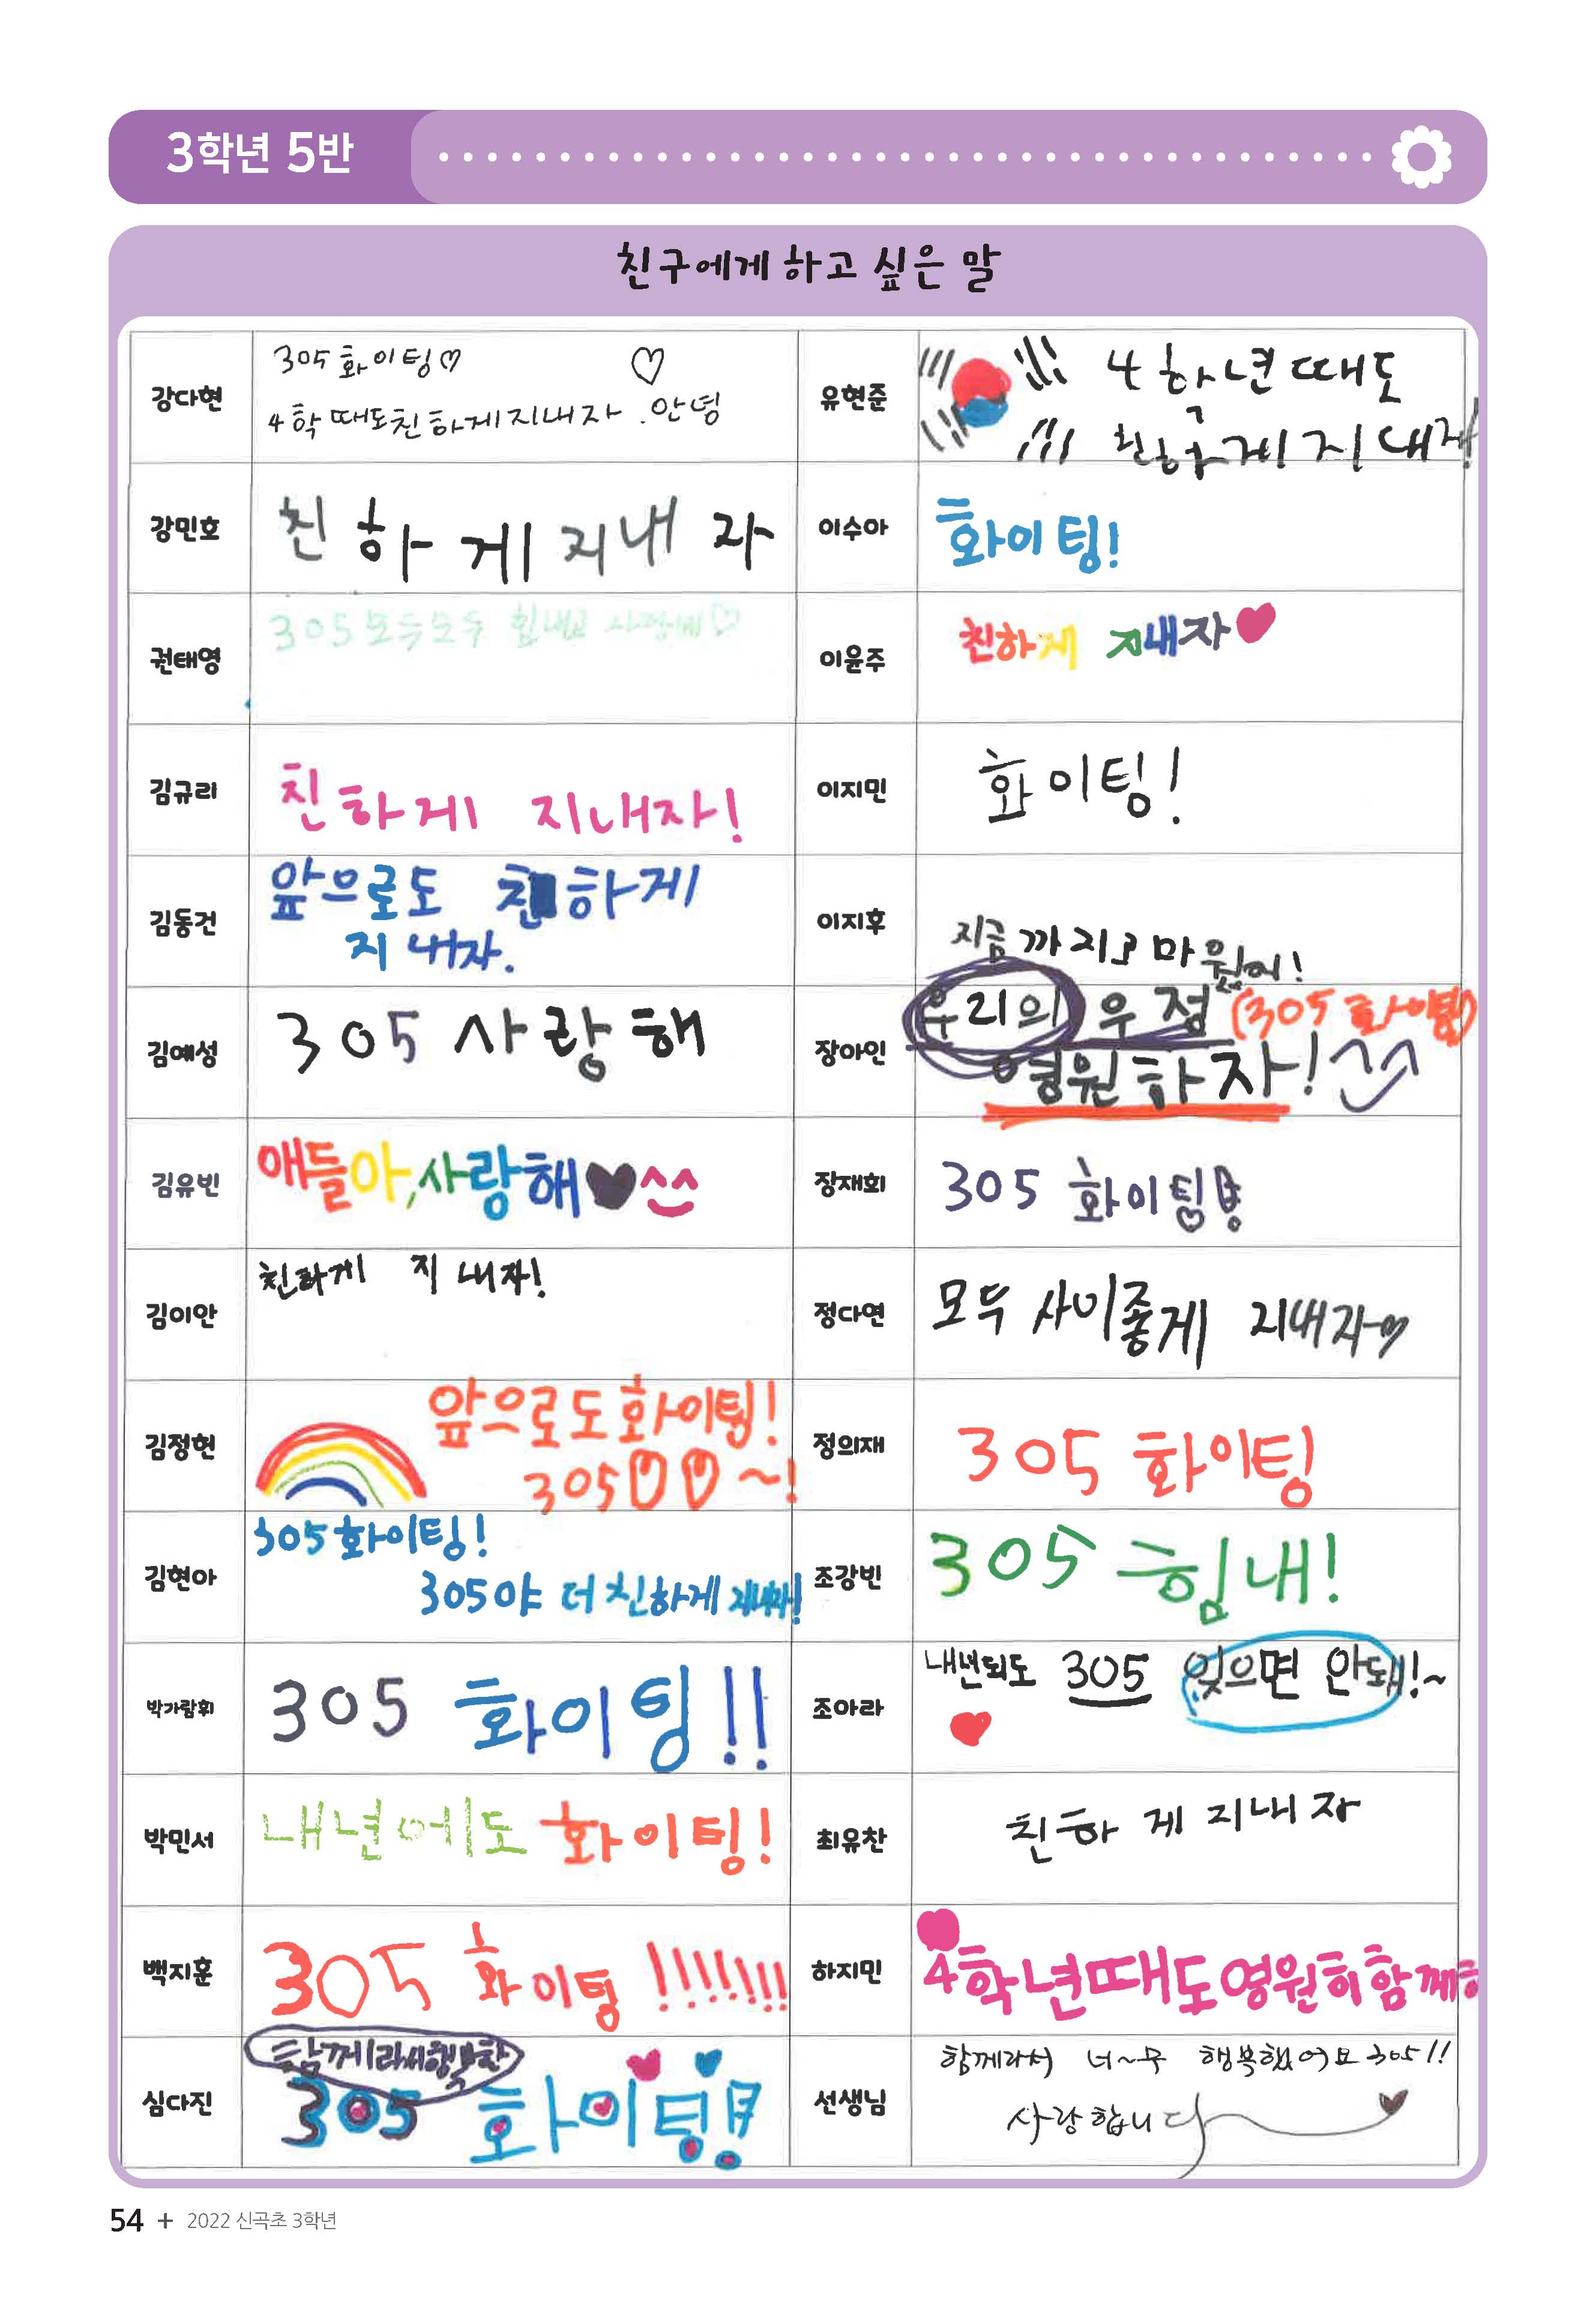 3학년 5반
친구에게 하고 싶은 말
강다현
305 화이팅♡
4학 때도 친하게 지내자. 안녕
유현준
4학년때도
친하게 지내자!
강민호
친하게 지내자
이수아
화이팅!
권태영
305 모두모두 힘내고 사랑해♡
이윤주
친하게 지내자♥
김규리
친하게 지내자!
이지민
화이팅!
김동건
앞으로도 친하게
지내자.
이지후
지금까지고마웠어!
김예성
305 사랑해
장아인
우리의 우정 (305 화이팅)
영원하자!
김유빈
얘들아, 사랑해♥
장재희
305 화이팅!
김이안
친하게 지내자!
정다연
모두 사이좋게 지내자♡
김정현
앞으로도 화이팅!
305♡♡~!
정의재
305 화이팅
김현아
305 화이팅!
305야 더 친하게 지내자!
조강빈
305 힘내!
박가람휘
305 화이팅!!
조아라
내년되도 305 잊으면 안돼!~
박민서
내년에도 화이팅!
최유찬
친하게 지내자
백지훈
305 화이팅!!!!!!!!
하지민
4학년때도영원히함께하
심다진
함께라서행복한
305 화이팅!!
선생님
함께라서 너~무 행복했어요 305!!
사랑합니다
54 + 2022 신곡초 3학년